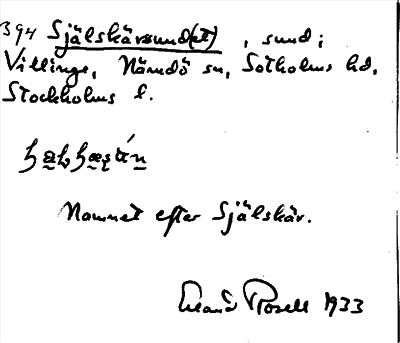 394 Själskärssund(et), sund;
Villinge, Nämdö sn, Sotholms hd,
Stockholms l.
Namnet efter Själskär.
Erland Rosell 1933